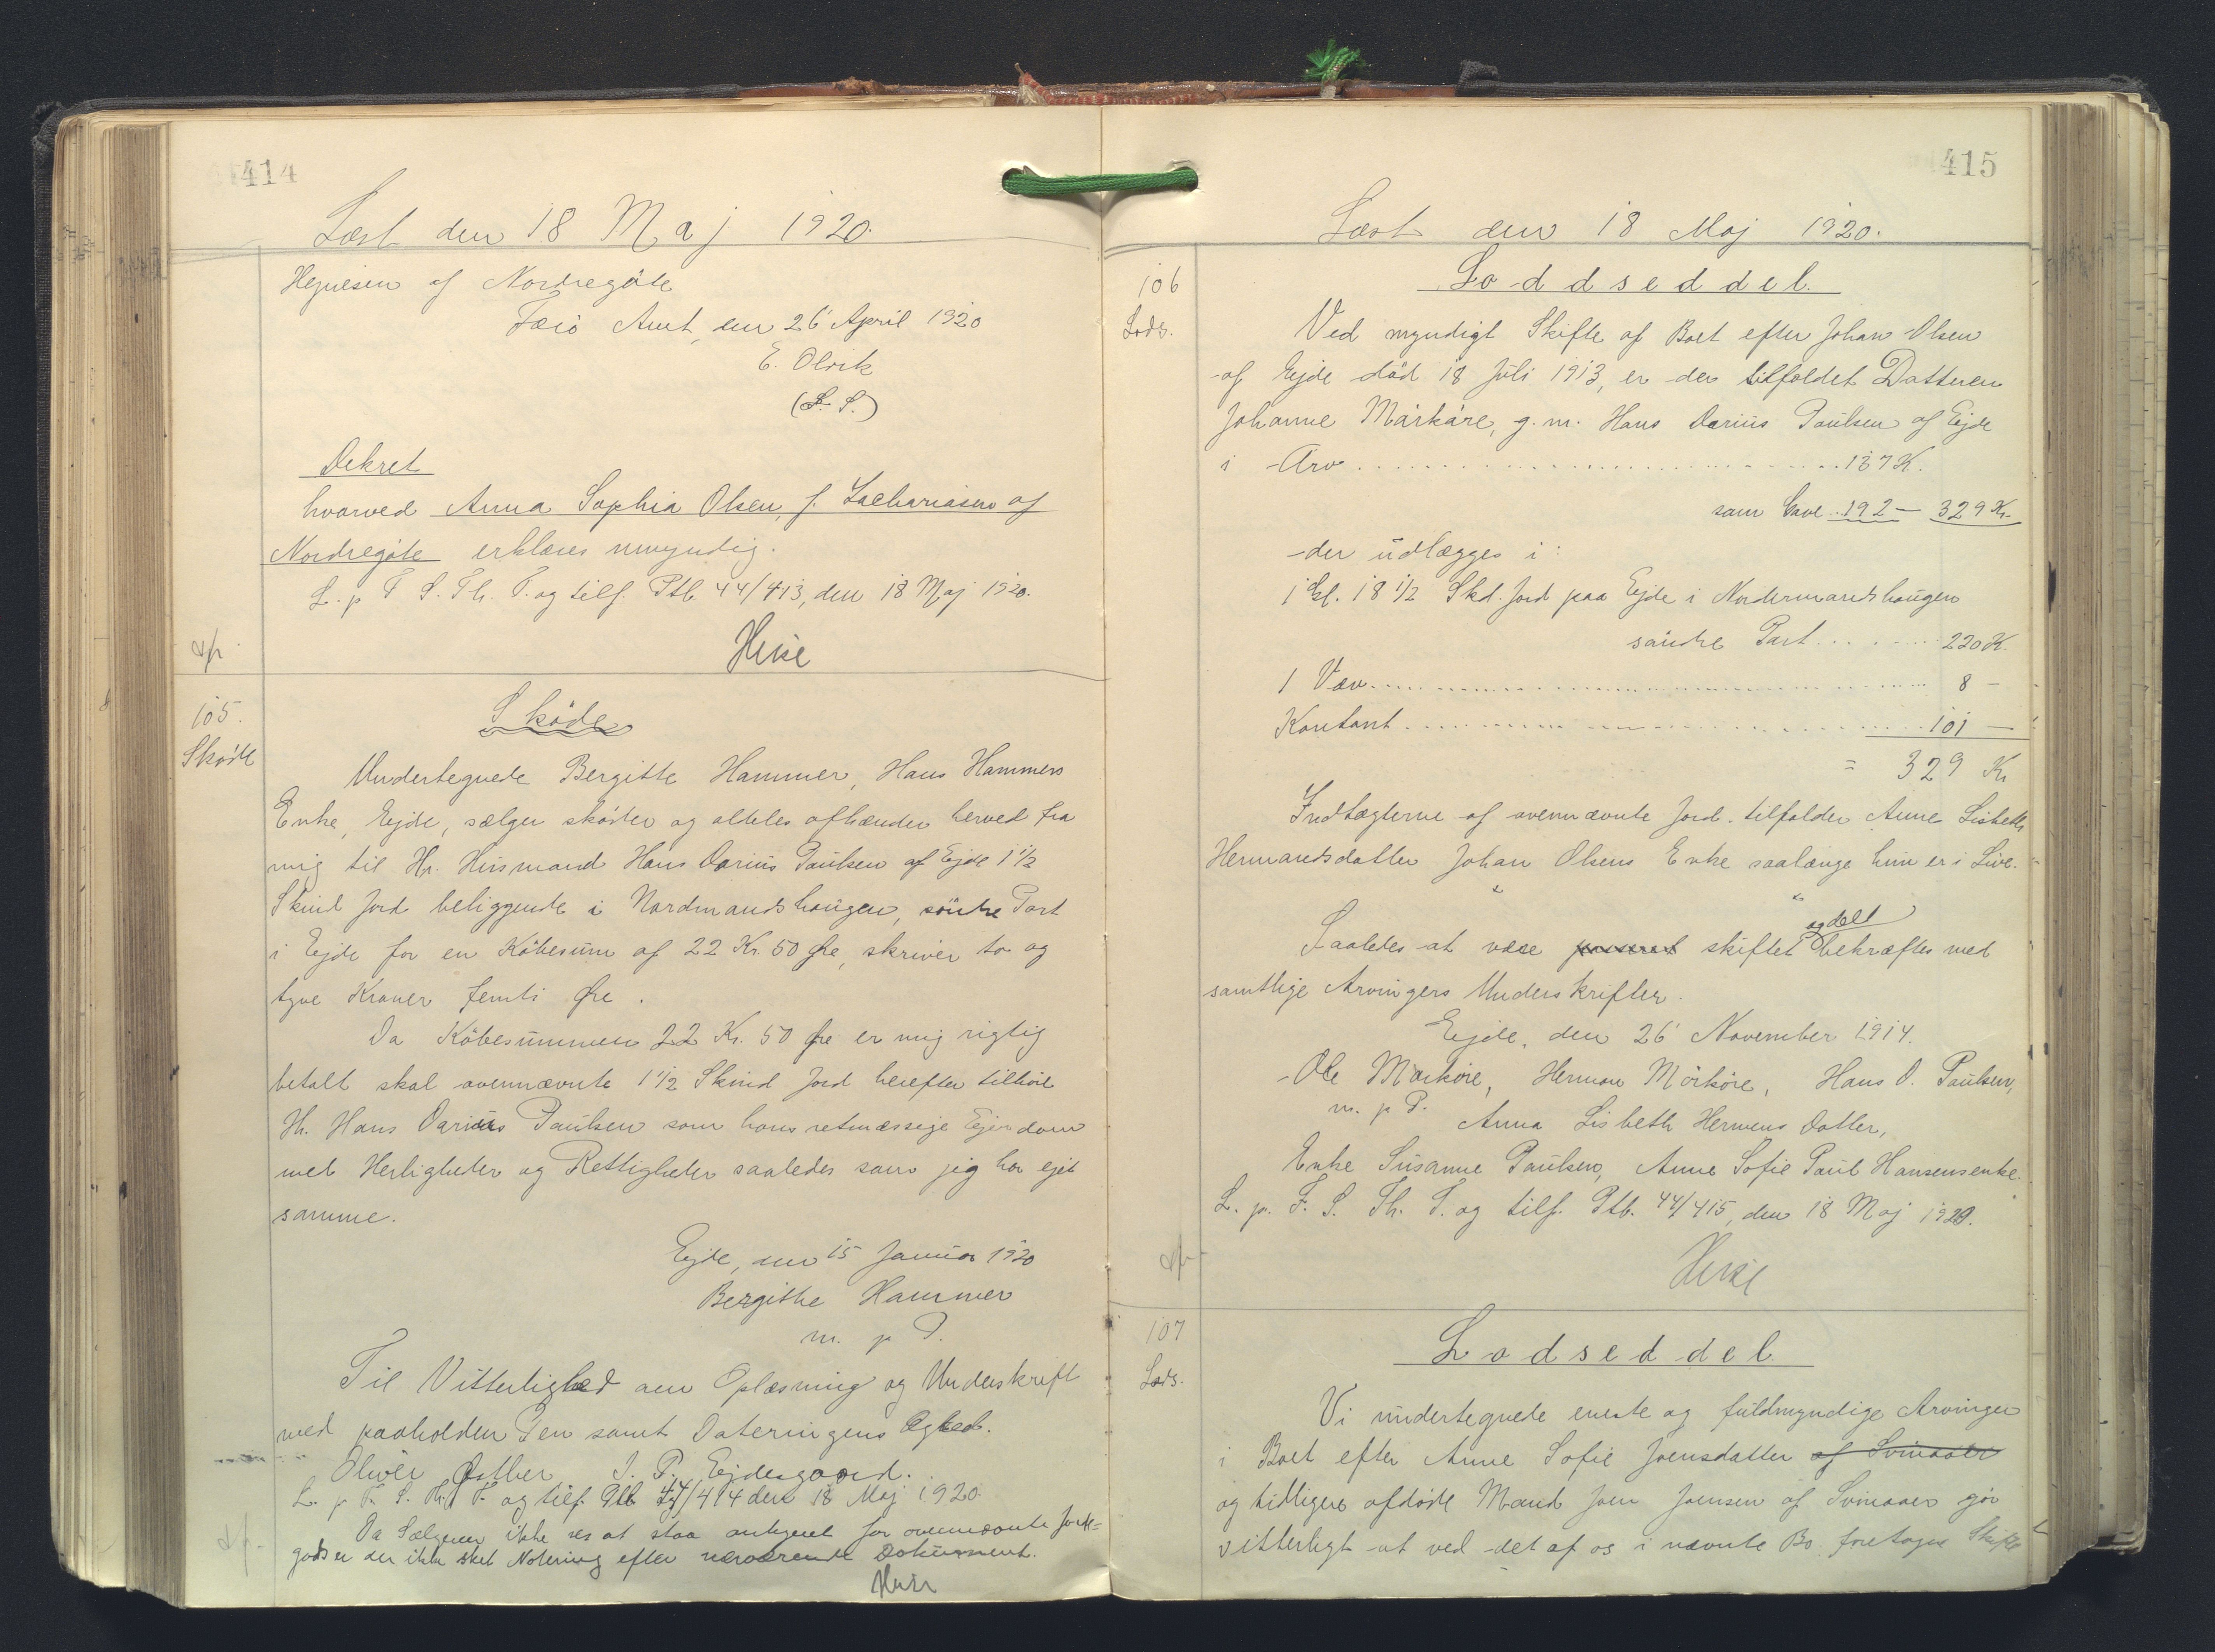 414
Læst den 18 Maj 1920.
Hejnesen af Nordregøte
Færø Amt, den 26 April 1920
E. Olrik
(L. S.)
Dekret
hvorved Anna Sophia Olsen, f. Zachariasen af
Nordregøte erklæres umyndig.
L. p. F. S. Th. P. og tilf. Ptb. 44/413, den 18 Maj 1920.
105.
Skøde
Skøde
Undertegnede Bergitte Hammer, Hans Hammers
Enke, Ejde, sælger skøder og aldeles afhænder herved fra
mig til Hr. Husmand Hans Darius Paulsen af Ejde 1 1/2
Skind Jord beliggende i Nordmandshaugen, søndre Part
i Ejde for en Købesum af 22 Kr. 50 Øre, skriver to og
tyve Kroner femti Øre.
Da Købesummen 22 Kr. 50 Øre er mig rigtig
betalt skal ovennævnte 1 1/2 Skind Jord herefter tilhøre
Hr. Hans Darius Paulsen som hans retmæssige Ejendom
med Herligheder og Rettigheder saaledes som jeg har ejet
samme.
Ejde, den 15 Januar 1920
Bergithe Hammer
m. p. P.
Til Vitterlighed om Oplæsning og Underskrift
med paaholden Pen samt Dateringens Ægthed.
Oliver Østher J. P. Ejdesgaard.
L. p. F. S. Th. P. og tilf. Ptb. 44/414 den 18 Maj 1920.
Da Sælgeren ikke ses at staa antegnet for ovennævnte Jord=
gods er der ikke sket Notering efter nærværende Dokument.
415
Læst den 18 Maj 1920.
106
Lods.
Loddseddel.
Ved myndigt Skifte af Boet efter Johan Olsen
af Ejde død 18 Juli 1913, er der tilfaldet Datteren
Johanne Mørkøre, g. m. Hans Darius Paulsen af Ejde
i Arv ............ 137 K.
som Gave 192 — 329 Kr.
der udlægges i:
1 Gl. 18 1/2 Skd. Jord paa Ejde i Nordermandshaugen
søndre Part ....... 220 K.
1 Væv ............ 8 —
Kontant ............ 101 —
= 329 Kr
Indtægterne af ovennævnte Jord tilfalder Anne Lisbeth
Hermandsdatter Johan Olsens Enke saalænge hun er i Live.
og delt
Saaledes at være passeret skiftet bekræftes med
samtlige Arvingers Underskrifter.
Ejde, den 26 November 1914.
Ole Mørkøre, Herman Mørkøre, Hans D. Paulsen,
m. p. P. Anna Lisbeth Hermens Datter,
Enke Susanne Paulsen, Anne Sofie Paul Hansensenke.
L. p. F. S. Th. P. og tilf. Ptb. 44/415, den 18 Maj 1920.
107
Lods.
Lodseddel
Vi undertegnede eneste og fuldmyndige Arvinger
i Boet efter Anne Sofie Joensdatter af Svinaaer
og tidligere afdøde Mand Joen Joensen af Svinaaer gør
vitterligt at ved det af os i nævnte Bo foretagne Skifte